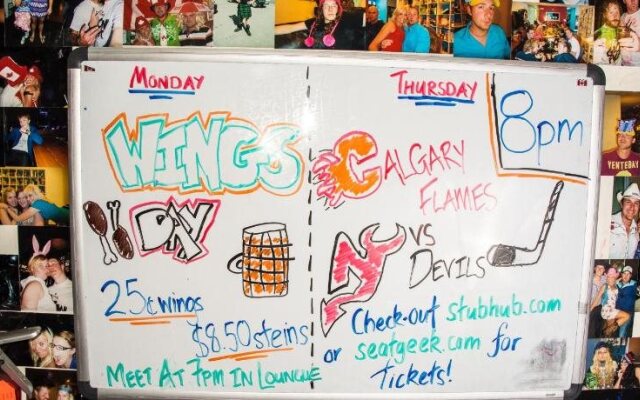 MONDAY
WINGS
DAY
25¢ wings
$8.50 steins
MEET AT 7PM IN LOUNGUE
THURSDAY
8pm
CALGARY
FLAMES
VS
DEVILS
Check-out stubhub.com
or seatgeek.com for
tickets!